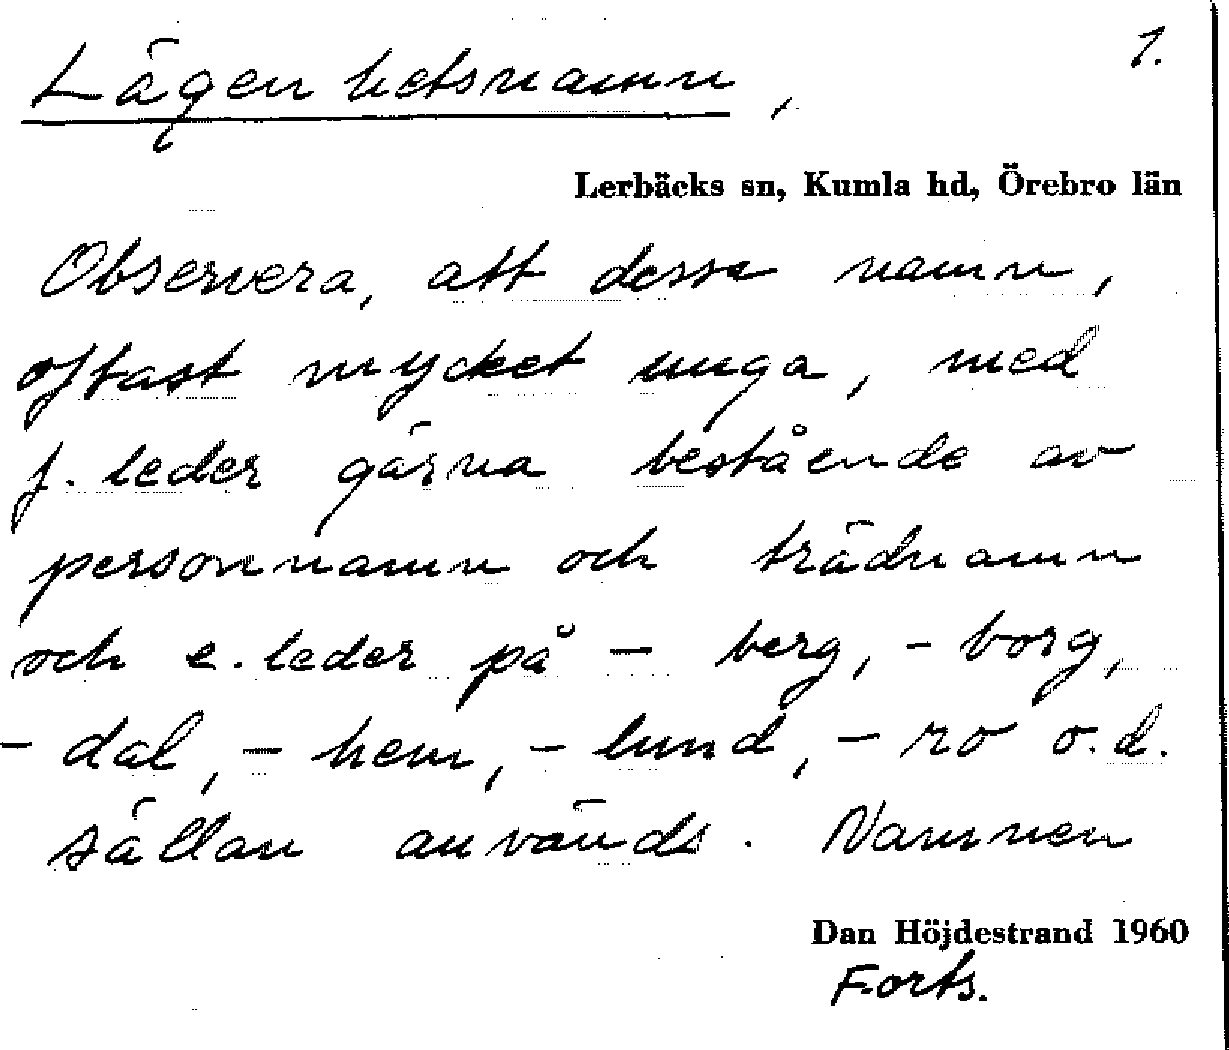 Lägenhetsnamn, 1.
Lerbäcks sn, Kumla hd, Örebro län
Observera, att dessa namn,
oftast mycket unga, med
f. leder gärna bestående av
personnamn och trädnamn
och e. leder på - berg, - borg,
- dal, - hem, - lund, - ro o.d.
sällan används. Namnen
Dan Höjdestrand 1960
Forts.